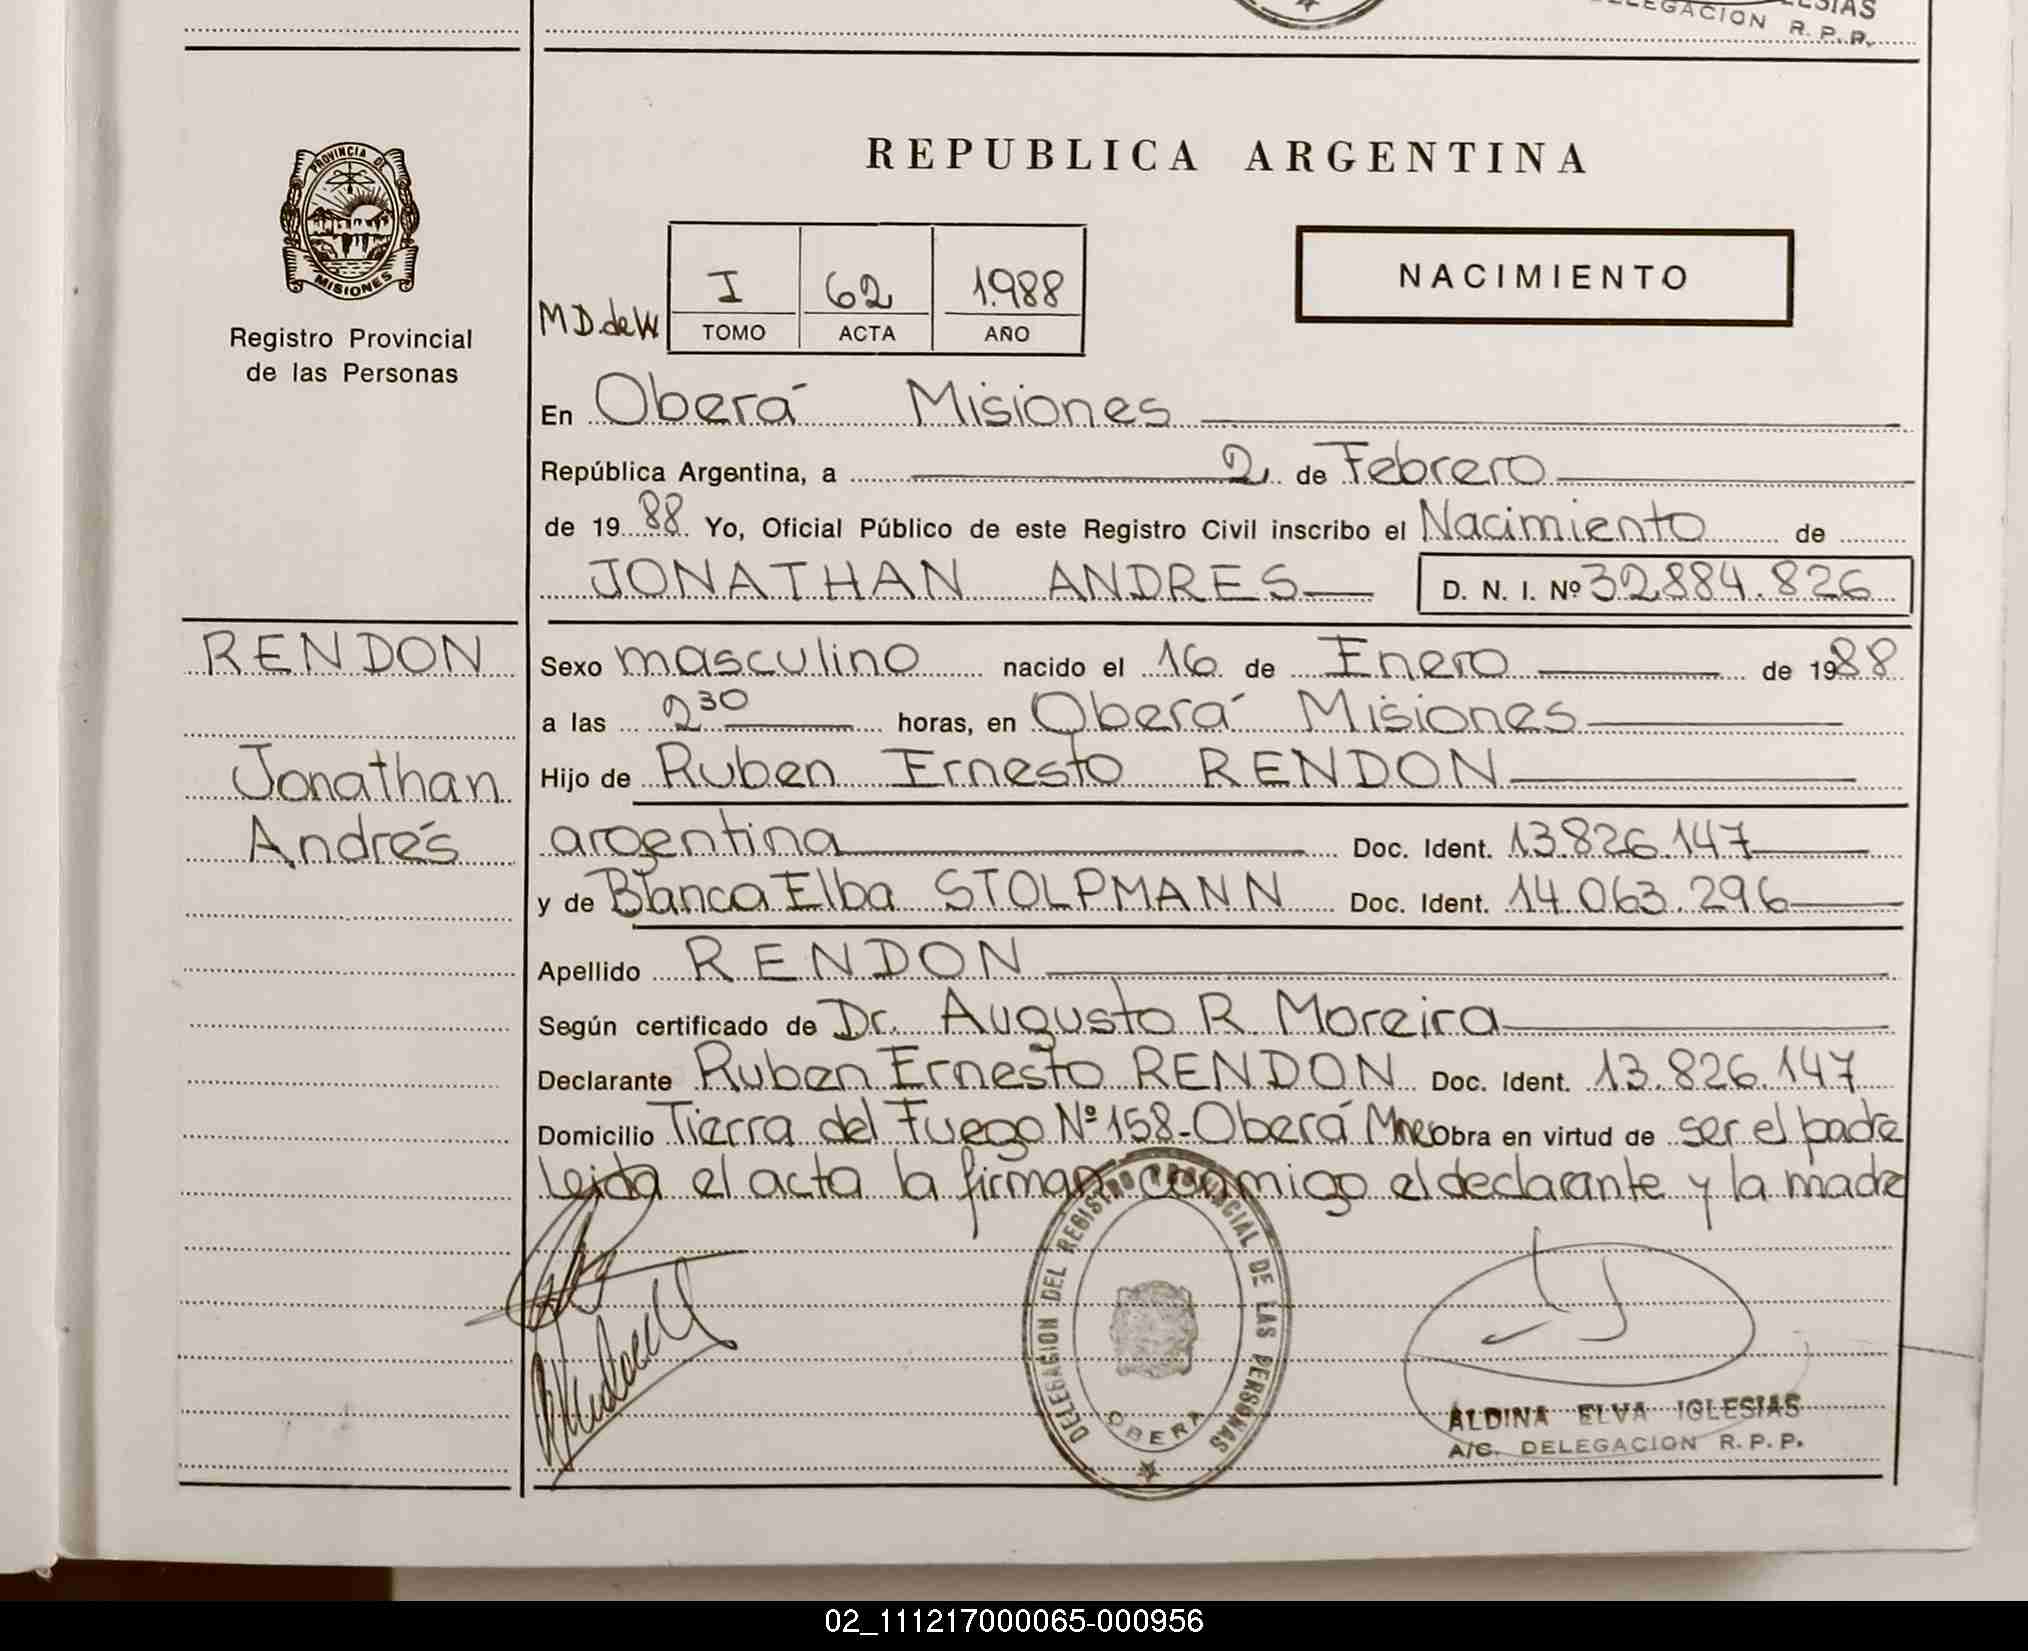 LEGACION R. P. P.
PROVINCIA DE
MISIONES
Registro Provincial
de las Personas
REPUBLICA ARGENTINA
NACIMIENTO
I 62 1.988
M D. de W TOMO ACTA AÑO
En Oberá Misiones
República Argentina, a 2 de Febrero
de 19 88 Yo, Oficial Público de este Registro Civil inscribo el Nacimiento de
JONATHAN ANDRES D. N. I. Nº 32.884.826
RENDON
Jonathan
Andrés
Sexo masculino nacido el 16 de Enero de 1988
a las 2 30 horas, en Oberá Misiones
Hijo de Ruben Ernesto RENDON
argentina Doc. Ident. 13.826.147
y de Blanca Elba STOLPMANN Doc. Ident. 14.063.296
Apellido RENDON
Según certificado de Dr. Augusto R Moreira
Declarante Ruben Ernesto RENDON Doc. Ident. 13.826.147
Domicilio Tierra del Fuego Nº 158-Oberá Mnes Obra en virtud de ser el padre
Leida el acta la firman conmigo el declarante y la madre
DELEGACION DEL REGISTRO PROVINCIAL DE LAS PERSONAS
OBERA
ALDINA ELVA IGLESIAS
A/C. DELEGACION R. P. P.
02_111217000065-000956